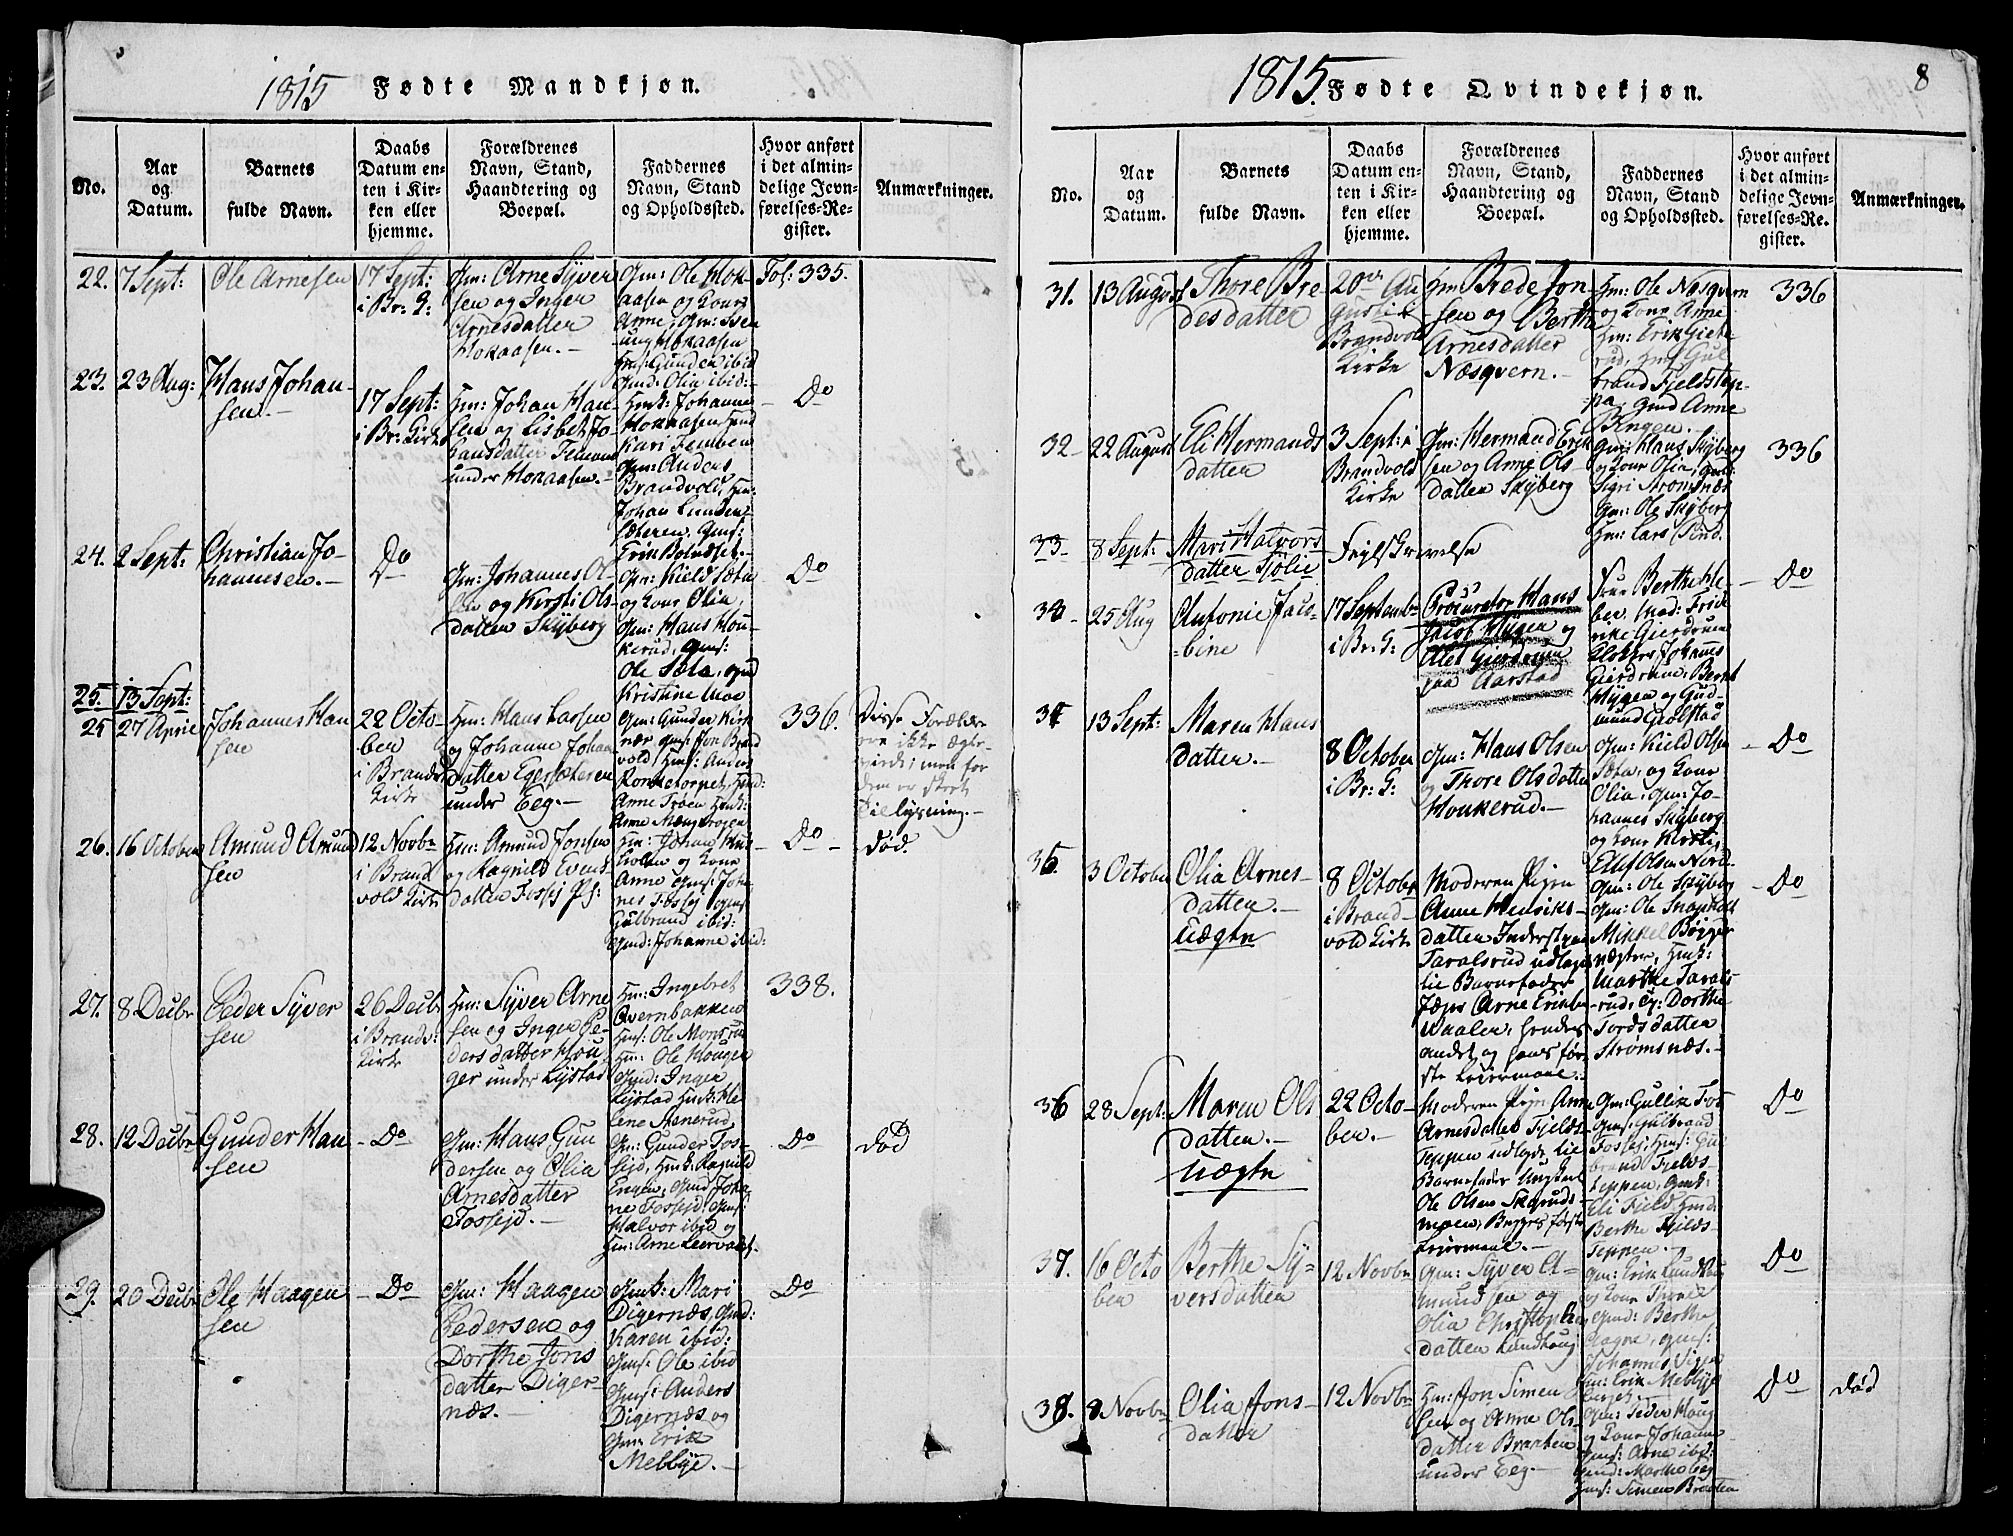 1815 Fødte Mandkjøn.
No.
Aar
og
Datum.
Barnets
fulde Navn.
Daabs
Datum en-
ten i Kir-
ken eller
hjemme.
Forældrenes
Navn, Stand,
Haandtering og
Boepæl.
Faddernes
Navn, Stand
og Opholdssted.
Hvor anført
i det almin-
delige Jevn-
førelses-Re-
gister.
Anmærkninger.
22. 7 Sept:
Ole Arnesen
17 Sept:
i Br: G:
Gm: Arne Syver
sen og Inger
Arnesdatter
Mokaasen.-
Gm: Ole Mok-
aasen og Kone
Anne, Gm:
Mokaasen
Gunder ibid
Gmd: Olia ibid:
Fol: 335.
23. 23 Aug:
Hans Johan-
sen.-
17 Sept:
i Br: Kirke
Hm: Johan Han-
sen og Lisbet Jo-
hansdatter
under Mokaasen.-
Johanne
Mokaasen
Kari
Gm: Anders
Brandvold,
Johan Lunden-
sæteren, Gms:
Erik
Do
24. 2 Sept:
Christian Jo-
hannesen.-
Do
Gm: Johannes Ol-
sen og Kirsti Ols-
datter Skyberg
Gm: Kield Sæta
og Kone Olia,
Gm: Hans Hon-
kerud, Gms:
Ole Sæta, Gmd
Kristine Moe
Do
25. 13 Sept:
25 27 April
Johannes Han
sen
22 Octo-
ber
i Brandv
Kirke
Hm: Hans Larsen
og Johanne Johan
datter Egersæteren
under Eeg.-
Gm: Gunder Kirk
nær Gms: Jon Brand
vold, Hms: Anders
Ronketorpet,
Anne Troen
Anne
336.
Disse Forældre
ere ikke Ægte-
viede, men for
dem er skeet
Tillysning.-
26. 16 October
Amund Amund
sen
12 Novbr
i Brand
vold Kirke
Hm: Amund Jonsen
og Ragnild Evens-
datter Fossej
Hm: Johan
og Kone
Anne Gms: Joha-
nes Fossej Gms:
Gulbrand ibid:
Gmd: Johanne ibid:
Do
død.
27. 8 Decbr
Peder Syver
sen
26 Decbr
i Brandv:
Kirke
Hm: Syver Arne
sen og Inger Pe-
dersdatter Hou
ger under Lystad
Hm: Ingebret
Qvernbakken
Hms: Ole Monsrud
Hm: Ole Houger
Gmd: Inger
Lystad
lene Stenerud
338.
28. 12 Decbr
Gunder Han
sen
Do
Gm: Hans Gun
dersen og Olia
Arnesdatter
Fossejd.-
Gm: Gunder Fos-
sejd, Ragnild
Engen, Gmd Joha-
ne Fossejd, Gms:
Halvor ibid og
Hm: Arne
Do
død
29. 20 Decbr
Ole Haagen
sen
Do
Gm: Haagen
Pedersen og
Dorthe Jons
datter Diger-
næs.-
Gmk: Mari
Digernæs, Gmd:
Karen ibid:
Gms: Ole ibid
Gms: Anders
Digernæs og
Gm: Erik
Melbye.-
Do
1815. Fødte Qvindekjøn. 8
No.
Aar
og
Datum.
Barnets
fulde Navn.
Daabs
Datum en-
ten i Kir-
ken eller
hjemme.
Forældrenes
Navn, Stand,
Haandtering og
Boepæl.
Faddernes
Navn, Stand
og Opholdssted.
Hvor anført
i det almin-
delige Jevn-
førelses-Re-
gister.
Anmærkninger.
31. 13 August
Thore Bre
desdatter
20de Au
gust i
Brandvold
Kirke
Hm Brede Jon-
sen og Berthe
Arnesdatter
Næsqvern.-
Hm: Ole Næsqvern
og Kone Anne
Hm: Erik
rud, Hms Gul
brand Fjeldstep-
pa, Gmd Anne
Engen.
336
32 22 August
Eli Hermands
datter
3 Sept: i
Brandvold
Kirke
Gm: Hermand Erik
sen og Anne Ols-
datter Skyberg
Gm: Hans Skyberg
og Kone Olia, Gmd:
Sigri Strømsnæs
Gm: Ole Skyberg
Hm: Lars
336
33 8 Sept:
Mari Halvors
datter Tjølie
Fejlskrivelse
34 25 Aug
Antonie Jaco-
bine
17 Septembr
i Br: G:
Procurator Hans
Jacob Hygen og
Alet Gierdrum
paa Aarstad
Frue Berthe We-
ber, Mad: Fride
rike Gierdrum
Klokker Johannes
Gierdrum, Bernt
Hygen og Gud-
mund Grolstad
Do
35 13 Sept:
Maren Hans
datter.-
8 October
i Br: G:
Gm: Hans Olsen
og Thore Olsdatter
Honkerud.-
Gm: Kield Olsen
Sæta, og Kone
Olia, Gm: Jo-
hannes Skyberg
og Kone Kirsti,
Ellef Olsen Nord-
Do
35. 3 October
Olia Arnes-
datter.-
Uægte
8 October
i Brand-
vold Kirke
Moderen Pigen
Anne Henriks-
datter Inderst paa
Taralsrud udlagde
til Barnefader
Arne Eriksen
Waalen, hendes
andet og hans før-
ste Leiermaal.-
Gm: Ole Skyberg
Gm: Ole Snapkoll
Mikkel Bøgger-
nægter,
Marthe Tarals-
rud, Dorthe
Tordsdatter
Strømsnæs.-
Do
36 28 Sept:
Maren Ols
datter.-
Uægte
22 Octo-
ber.-
Moderen Pigen Anne
Arnesdatter Fjelds-
teppen udlagde til
Barnefader Ungkarl
Ole Olsen Skaruds-
moen, Begges første
Leiermaal.-
Gm: Gullik Fos
Gms: Gulbrand
Fossej, Hms: Gul
brand Fjelds-
teppen,
Eli Fjeld
Berthe Fjelds-
teppen.
Do
37. 16 Octo
ber
Berthe Sy-
versdatter
12 Novbr
Gm: Syver A-
mundsen og
Olia Christophers
datter Lundhoug
Gm: Erik Lundhoug
og Kone Thore
Gmd: Berthe
Gms:
Johannes
Hm: Erik Melbye
Do
38. 8 Novbr
Olia Jons-
datter
12 Novbr
Hm: Jon Simen
sen og Anne Ols-
datter Braaten
under Eeg.-
Gm: Peder Houg
og Kone Johanne
Gms: Arne ibid:
Gmd: Marthe Eeg
Hms: Simen Braaten
Do
død